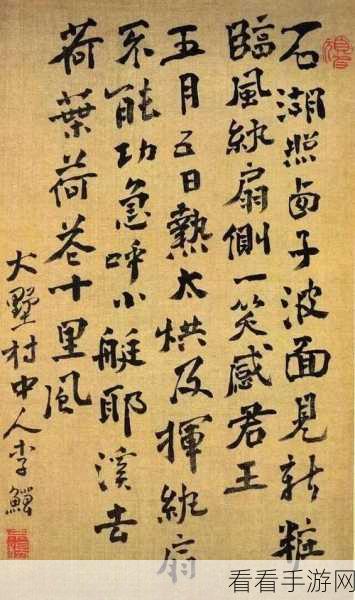 石湖照西子波面見新粧
臨風紈扇側一笑感君王
五月五日熱太烘及揮紈扇
不能功急呼小艇耶溪去
荷葉荷花十里風
大墅村中人李鱓
看看手游网
KKSYW.COM